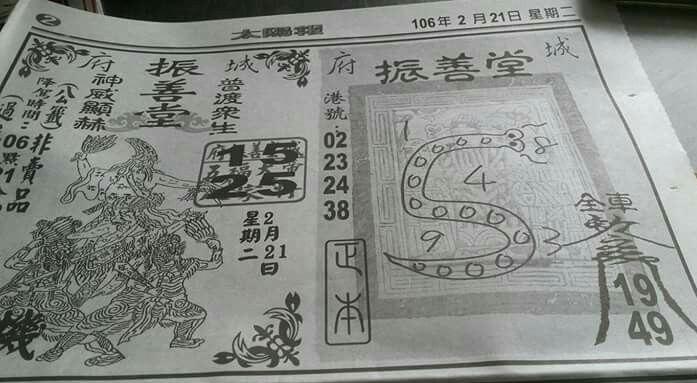 2
太陽報
106年2月21日 星期二
府 城
振善堂
神威顯赫
普渡眾生
非賣品
降駕時間：
15
25
2月21日
星期二
府 城
振善堂
港號：
02
23
24
38
正本
1
8
4
9
3
全車
19
49